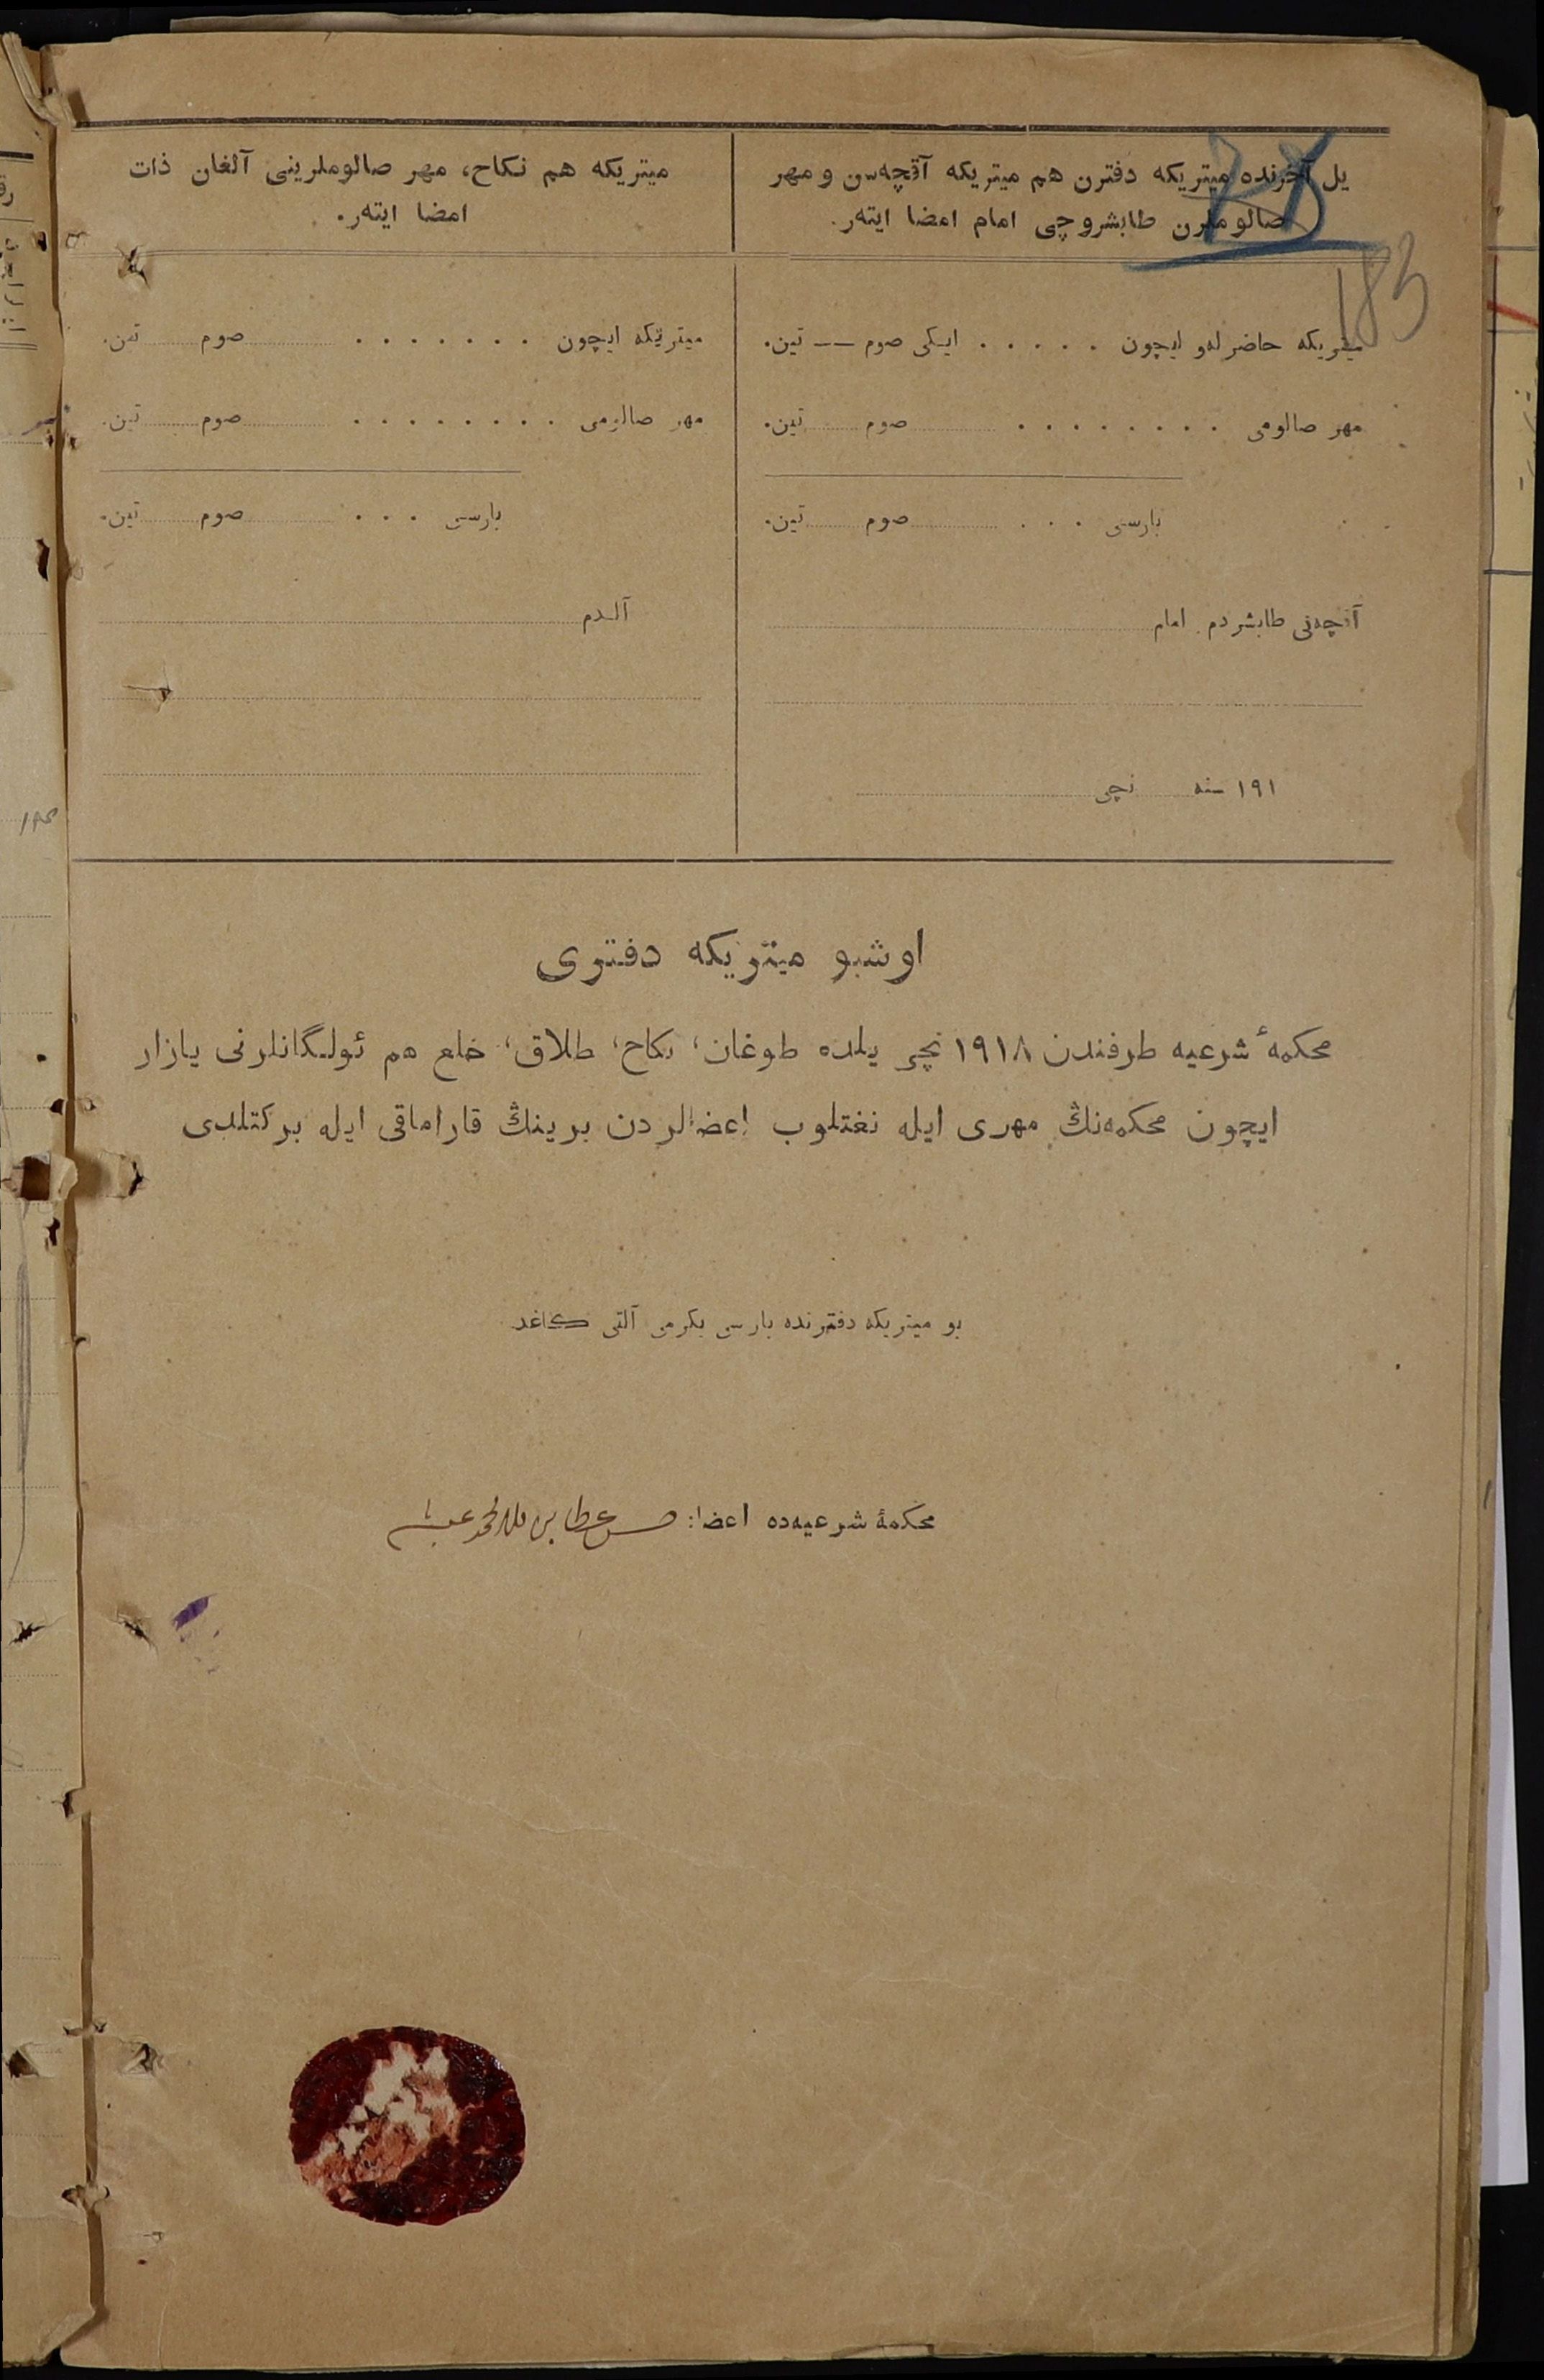 یل آخرنده میتریکه دفترن هم میتریکه آقچه‌سن و مهر
صالوملرن طابشروچی امام امضا ایته‌ر.
183
میتریکه حاضرله‌و ایچون . . . . . ایکی صوم —— تین.
مهر صالومی . . . . . . . . صوم تین.
بارسی . . . صوم تین.
آقچه‌نی طابشردم. امام
١٩١ سنه نچی
میتریکه هم نکاح، مهر صالوملرینی آلغان ذات
امضا ایته‌ر.
میتریکه ایچون . . . . . . . صوم تین.
مهر صالومی . . . . . . . . صوم تین.
بارسی . . . صوم تین.
آلدم
اوشبو میتریکه دفتری
محکمهٔ شرعیه طرفندن ١٩١٨ نچی یلده طوغان، نکاح، طلاق، خلع هم ئولگانلرنی یازار
ایچون محکمه‌نڭ مهری ایله نغتلوب اعضالردن برینڭ قاراماقی ایله برکتلدی
بو میتریکه دفترنده بارسی یکرمی آلتی کاغد
محکمهٔ شرعیه‌ده اعضا: حسن عطا بن ملا محمد